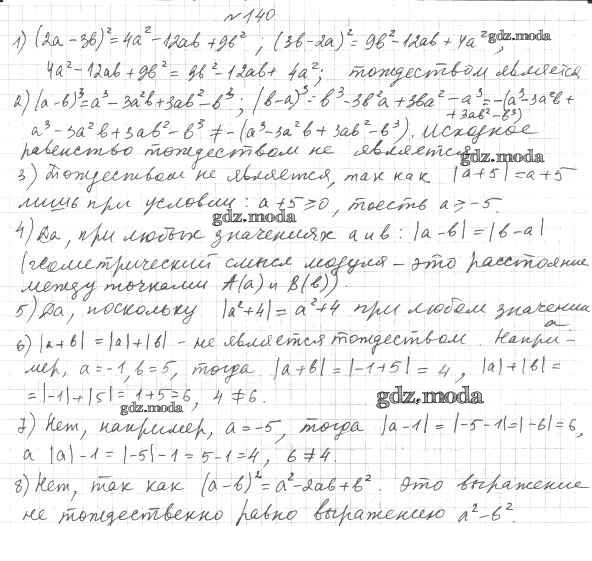 №140
1) (2a-3b)²=4a²-12ab+9b²; (3b-2a)²=9b²-12ab+4a²; gdz.moda
4a²-12ab+9b²=9b²-12ab+4a²; тождеством является
2) (a-b)³=a³-3a²b+3ab²-b³; (b-a)³=b³-3b²a+3ba²-a³=-(a³-3a²b+
+3ab²-b³)
a³-3a²b+3ab²-b³≠-(a³-3a²b+3ab²-b³). Исходное
равенство тождеством не является. gdz.moda
3) Тождеством не является, так как |a+5|=a+5
лишь при условии: a+5≥0, тоесть a≥-5.
gdz.moda
4) Да, при любых значениях a и b: |a-b|=|b-a|
(геометрический смысл модуля – это расстояние
между точками A(a) и B(b)).
5) Да, поскольку |a²+4|=a²+4 при любом значении
a
6) |a+b|=|a|+|b| – не является тождеством. Напри-
мер, a=-1, b=5, тогда |a+b|=|-1+5|=4, |a|+|b|=
=|-1|+|5|=1+5=6, 4≠6. gdz.moda
gdz.moda
7) Нет, например, a=-5, тогда |a-1|=|-5-1|=|-6|=6,
а |a|-1=|-5|-1=5-1=4, 6≠4.
8) Нет, так как (a-b)²=a²-2ab+b². Это выражение
не тождественно равно выражению a²-b².